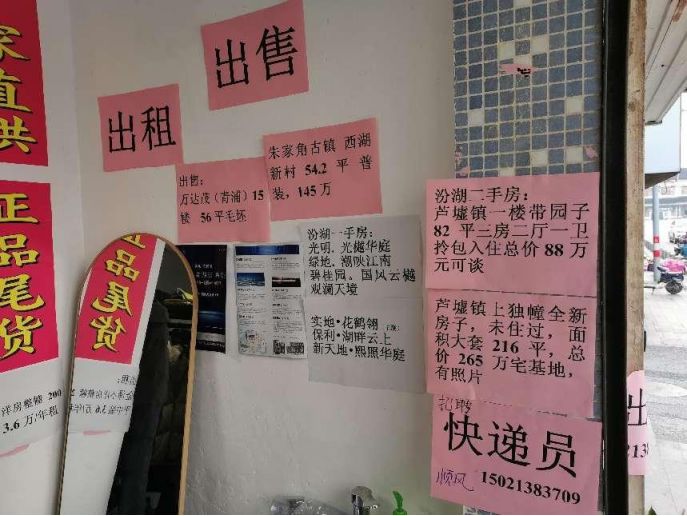 家直供
正品尾货
洋房整幢 200
3.6 万/年租
正品尾货
出租
出售
出售:
万达茂（青浦）15
楼 56 平毛坯
朱家角古镇 西湖
新村 54.2 平普
装，145万
汾湖一手房:
光明，光樾华庭
绿地，潮映江南
碧桂园。国风云樾
观澜天境
实地·花鹤翎
保利·湖畔云上
新天地·熙熙华庭
汾湖二手房:
芦墟镇一楼带园子
82 平三房二厅一卫
拎包入住总价 88 万
元可谈
芦墟镇上独幢全新
房子，未住过，面
积大套 216 平，总
价 265 万宅基地，
有照片
招聘
快递员
顺风 15021383709
出